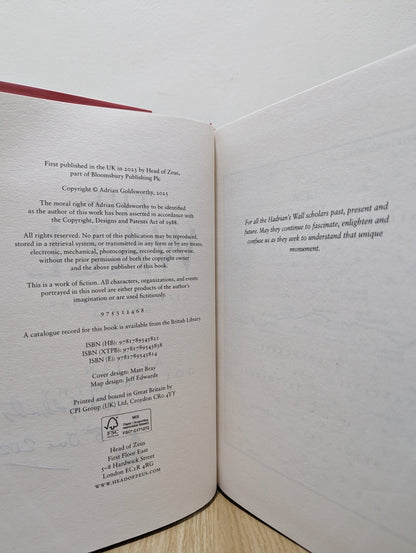 First published in the UK in 2023 by Head of Zeus,
part of Bloomsbury Publishing Plc
Copyright © Adrian Goldsworthy, 2023
The moral right of Adrian Goldsworthy to be identified
as the author of this work has been asserted in accordance with
the Copyright, Designs and Patents Act of 1988.
All rights reserved. No part of this publication may be reproduced,
stored in a retrieval system, or transmitted in any form or by any means,
electronic, mechanical, photocopying, recording, or otherwise,
without the prior permission of both the copyright owner
and the above publisher of this book.
This is a work of fiction. All characters, organizations, and events
portrayed in this novel are either products of the author's
imagination or are used fictitiously.
9 7 5 3 1 2 4 6 8
A catalogue record for this book is available from the British Library.
ISBN (HB): 9781789545821
ISBN (XTPB): 9781789545838
ISBN (E): 9781789545814
Cover design: Matt Bray
Map design: Jeff Edwards
Printed and bound in Great Britain by
CPI Group (UK) Ltd, Croydon CR0 4YY
FSC
MIX
Head of Zeus
First Floor East
5–8 Hardwick Street
London EC1R 4RG
WWW.HEADOFZEUS.COM
For all the Hadrian's Wall scholars past, present and
future. May they continue to fascinate, enlighten and
confuse us as they seek to understand that unique
monument.